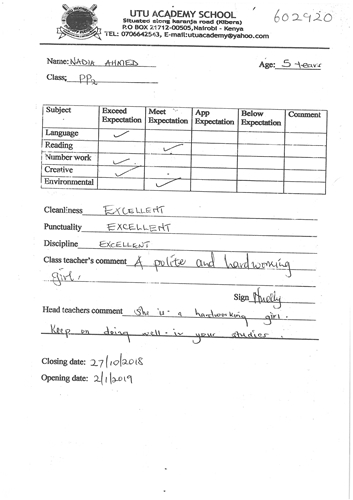 UTU ACADEMY SCHOOL
602920
Situated along karanja road (Kibera)
P.O BOX 21712-00505, Nairobi - Kenya
TEL: 0706642543, E-mail: utuacademy@yahoo.com
Name: NADIA AHMED Age: 5 years
Class: PP2
Subject Exceed Expectation Meet Expectation App Expectation Below Expectation Comment
Language ✓
Reading ✓
Number work ✓
Creative ✓
Environmental ✓
Cleanliness EXCELLENT
Punctuality EXCELLENT
Discipline EXCELLENT
Class teacher's comment A polite and hardworking
girl.
Sign
Head teachers comment She is a hardworking girl.
Keep on doing well in your studies.
Closing date: 27/10/2018
Opening date: 2/1/2019